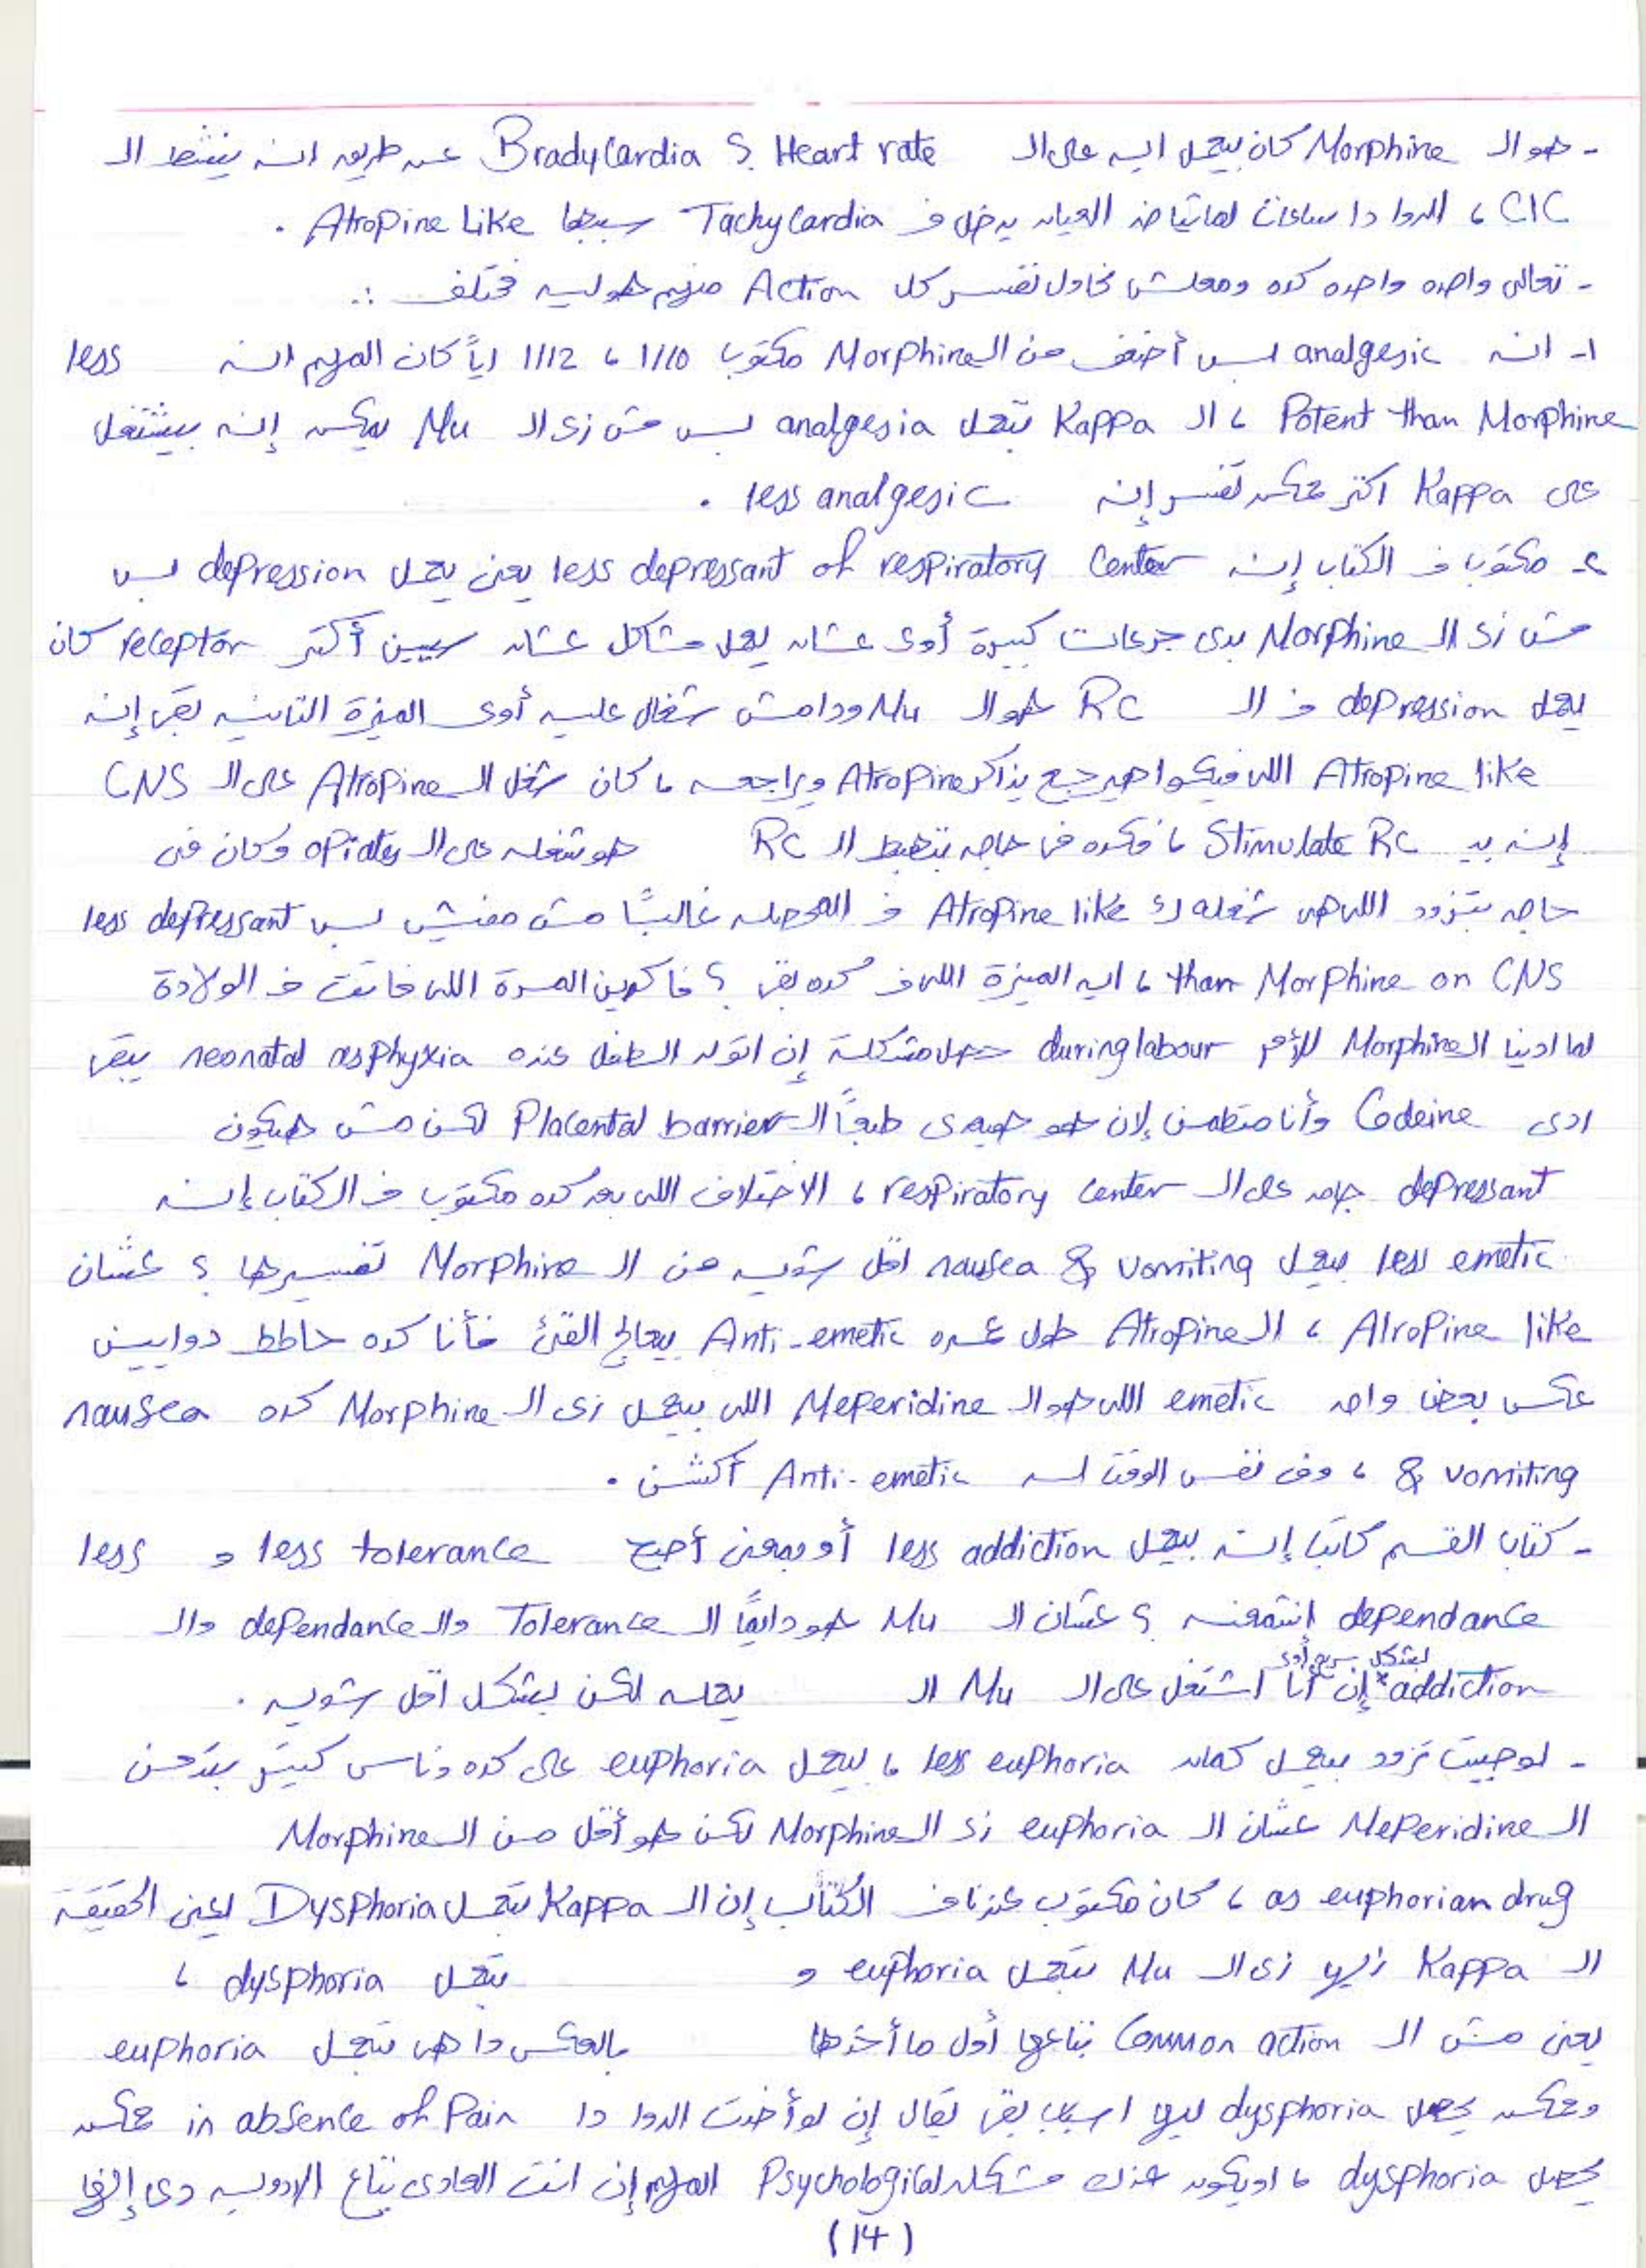 - هو الـ Morphine كان بيعمل ايه على الـ Heart rate ؟ Bradycardia عن طريق انه ينشط الـ
CIC ، الدوا دا ساعات لما تاخد العيان يدخل فـ Tachycardia سببها Atropine Like .
- تعالى واحده واحده كده ومعلش نحاول نفسر كل Action منهم هو ليه مختلف :
1- انه analgesic بس أضعف من الـ Morphine مكتوب 1/10 ، 1/12 اياً كان المهم انه less
Potent than Morphine ، الـ Kappa بتعمل analgesia بس مش زى الـ Mu يمكن إنه بيشتغل
على Kappa اكتر ممكن تفسر إنه less analgesic .
2- مكتوب فـ الكتاب إنه less depressant of respiratory Center يعنى يعمل depression بس
مش زى الـ Morphine بدى جرعات كبيرة أوى عشان يعمل مشاكل عشان سببين أكتر receptor كان
يعمل depression فـ الـ RC هو الـ Mu ودا مش شغال عليه أوى الميزة التانيه بقى إنه
Atropine like اللى فيكوا هيرجع يذاكر Atropine ويراجعه ، كان شغل الـ Atropine على الـ CNS
إنه بيـ Stimulate RC ، فكده فى حاجه بتهبط الـ RC هو شغله على الـ opiates وكان فى
حاجه بتزود اللى هى شغله كـ Atropine like فـ المحصله غالبًا مش مفيش بس less depressant
than Morphine on CNS ، ايه الميزة اللى فـ كده بقى ؟ فاكرين المرة اللى فاتت فـ الولادة
لما ادينا الـ Morphine للأم during labour حصل مشكلة إن اتولد الطفل عنده neonatal asphyxia يبقى
ادى Codeine وأنا مطمن لان هو هيعدى طبعًا الـ Placental barrier لكن مش هيكون
depressant جامد على الـ respiratory center ، الاختلاف اللى بعد كده مكتوب فـ الكتاب إنه
less emetic بيعمل nausea & vomiting اقل شويه من الـ Morphine تفسيرها ؟ عشان
Atropine like ، الـ Atropine طول عمره Anti-emetic بيعالج القئ فأنا كده حاطط دوايين
عكس بعض واحد emetic اللى هو الـ Meperidine اللى بيعمل زى الـ Morphine كده nausea
& vomiting ، وفى نفس الوقت له Anti-emetic أكشن .
- كتاب القسم كاتب إنه بيعمل less addiction أو بمعنى أصح less tolerance و less
dependance إشمعنه ؟ عشان الـ Mu هو دايمًا الـ Tolerance والـ dependance والـ
بشكل سريع أوى
addiction إن أنا اشتغل على الـ Mu الـ يعمله لكن بشكل اقل شويه .
- لو جيت تزود بيعمل كمان less euphoria ، بيعمل euphoria على كده وناس كتير بتدمن
الـ Meperidine عشان الـ euphoria زى الـ Morphine لكن هو أقل من الـ Morphine
as euphorian drug ، كان مكتوب عندنا فـ الكتاب إن الـ Kappa بتعمل Dysphoria يعنى الحقيقة
الـ Kappa زيها زى الـ Mu بتعمل euphoria و بتعمل dysphoria ،
يعنى مش الـ Common action بتاعها أول ما أخدها بالعكس دا هى بتعمل euphoria
وممكن يحصل dysphoria ليها اسباب بقى يقال إن لو أخدت الدوا دا in absence of Pain ممكن
يحصل dysphoria ، او يكون عندك مشكله Psychological المهم إن انت العادى بتاع الادويه دى إنها
(14)